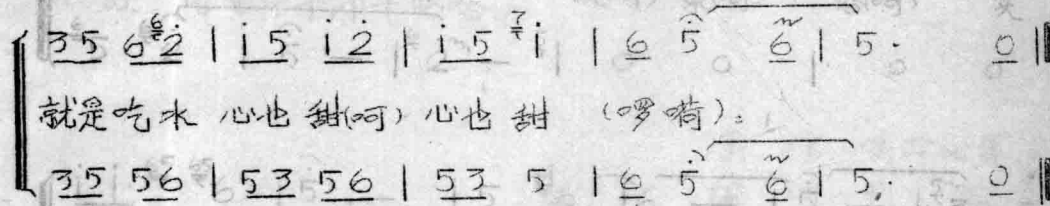 3 5 6 6 2̇ | i 5 i 2̇ | i 5 7 i | 6 5 6 | 5 · 0 ‖
就是吃水 心也 甜(呵) 心也 甜 (啰嗬)。
3 5 5 6 | 5 3 5 6 | 5 3 5 | 6 5 6 | 5 · 0 ‖